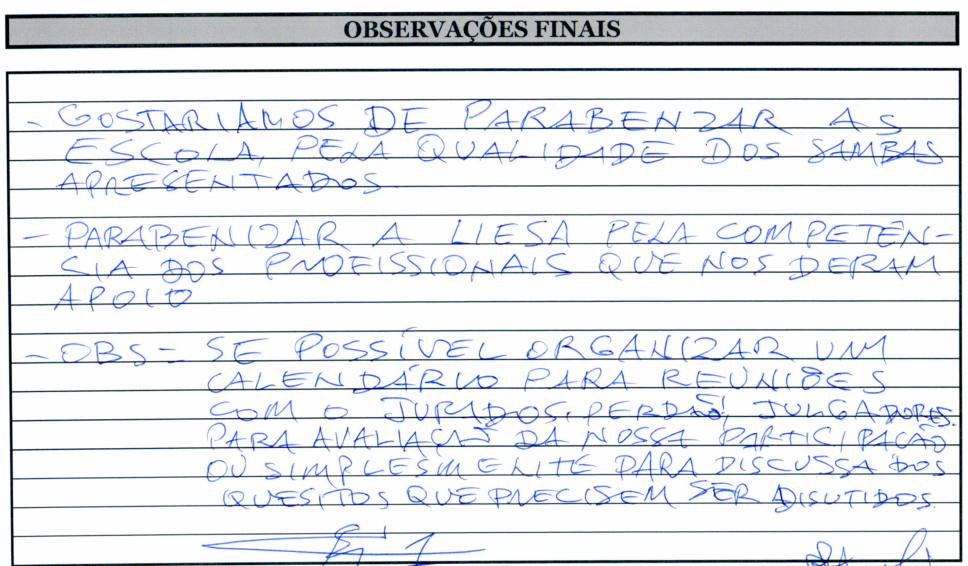 OBSERVAÇÕES FINAIS
- GOSTARIAMOS DE PARABENZAR AS
ESCOLA, PELA QUALIDADE DOS SAMBAS
APRESENTADOS.
- PARABENIZAR A LIESA PELA COMPETÊN-
SIA DOS PROFISSIONAIS QUE NOS DERAM
APOIO
- OBS = SE POSSÍVEL ORGANIZAR UM
CALENDÁRIO PARA REUNIÕES
COM O JURADOS, PERDÃO, JULGADORES.
PARA AVALIAÇÃO DA NOSSA PARTICIPAÇÃO
OU SIMPLESMENTE PARA DISCUSSA DOS
QUESITOS QUE PRECISEM SER DISUTIDOS.